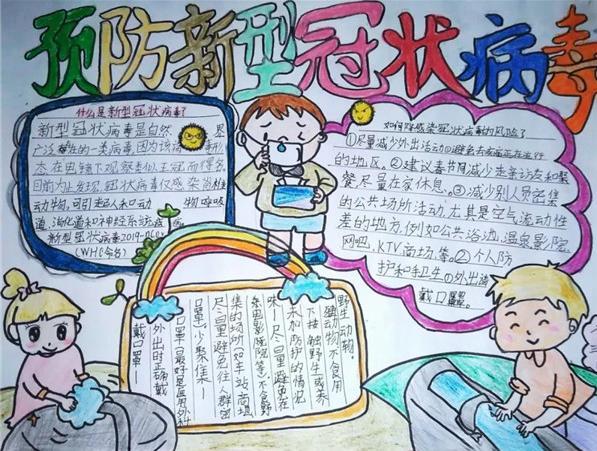 预防新型冠状病毒
什么是新型冠状病毒?
新型冠状病毒是自然界
广泛 生的一类病毒因为该病 形
态在电镜下观察类似王冠而得名
目前为止发现,冠状病毒仅感染脊椎
动物,可引起人和动物呼吸
道、消化道和神经系统疾
新型冠状病毒2019-nCoV
(WHO命名)
如何 感染冠状病毒的风险?
①尽量减少外出活动 避免去疫病正在流行
的地区。②建议春节间减少走亲访友和聚
餐尽量在家休息。③减少到人员密集
的公共场所活动,尤其是空气流动性
差的地方,例如公共浴池、温泉、影院、
网吧、KTV、商场 等。②个人防
护和手卫生 外出 戴口罩
野生动物,
健动物 不食用
下接触野生或养
未加防护的情况
味—尽量避免在
条电影院院等,不食野
集的场所 如车站、商场、
尽量避免往人群密
口罩少聚集—
口罩最好是医用外科
外出时正确戴
戴口罩—